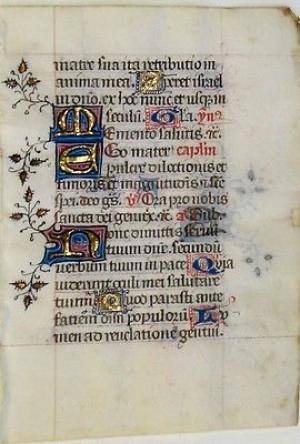 matre sua ita retributio in
anima mea. Speret israel
in dño. ex hoc nunc et usqꝫ in
seculũ. Gla. yñ
Memento salutis. ⁊c.
Ego mater caplm
pulcre dilectionis et
timoris et et sce
spei. deo gs̃. ℣ Ora pro nobis
sancta dei genitx̃. ⁊c. a Sub.
Nunc dimittis servũ
tuum dñe. secundũ
verbum tuum in pace. Quia
viderunt oculi mei salutare
tuum. Quod parasti ante
faciem oĩm populorum. Lu
men ad revelationẽ gentiũ.